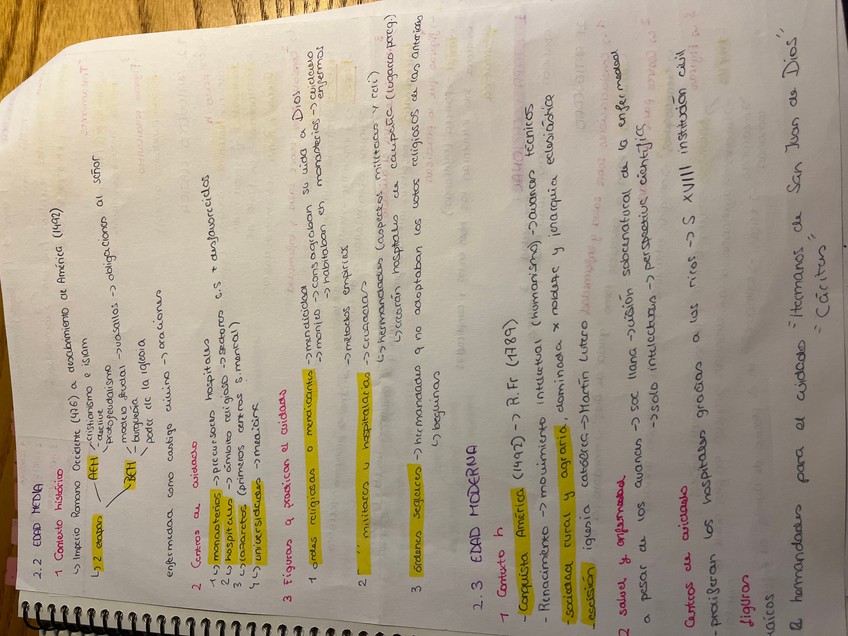 2.2 EDAD MEDIA
1 Contexto histórico
↳ Imperio Romano Occidente (476) a descubrimiento de América (1492)
↳ 2 etapas
AEM
- cristianismo e islam
- declive
- protofeudalismo
BEM
- modelo feudal → vasallos → obligaciones al señor
- burguesia
- poder de la iglesia
enfermedad como castigo divino → oraciones
2 Centros de cuidado
1 ↳ monasterios → precursores hospitales
2 ↳ hospitales → ámbito religioso → sectores s.s + desfavorecidos
3 ↳ lazaretos (primeros centros s. mental)
4 ↳ universidades → medicina
3 Figuras q practican el cuidado
1 ordes religiosas o mendicantes → mendicidad
→ monjes → consagraban su vida a Dios
→ habitaban en monasterios → cuidado enfermos
→ métodos empíricos
2 " militares u hospitalarias → cruzadas
↳ hermandades (aspectos militares y reli)
↳ crearán hospitales de campaña (lugares pereg)
3 órdenes seglares → hermandades q no adoptaban los votos religiosos de las anteriores
↳ beguinas
2.3 EDAD MODERNA
1 Contexto h
- Conquista América (1492) → R. Fr (1789)
- Renacimiento → movimiento intelectual (humanismo) → avances técnicos
- sociedad rural y agraria, dominada x nobleza y jerarquia eclesiástica
- escisión iglesia católica → Martín Lutero
2 salud y enfermedad
a pesar de los avances → soc llana → visión sobrenatural de la enfermedad
→ solo intelectuales → perspectiva científica
Centros de cuidado
- proliferan los hospitales gracias a los ricos → S XVIII institución civil
figuras
laicos
& hermandades para el cuidado "Hermanos de San Juan de Dios"
"Cáritas"